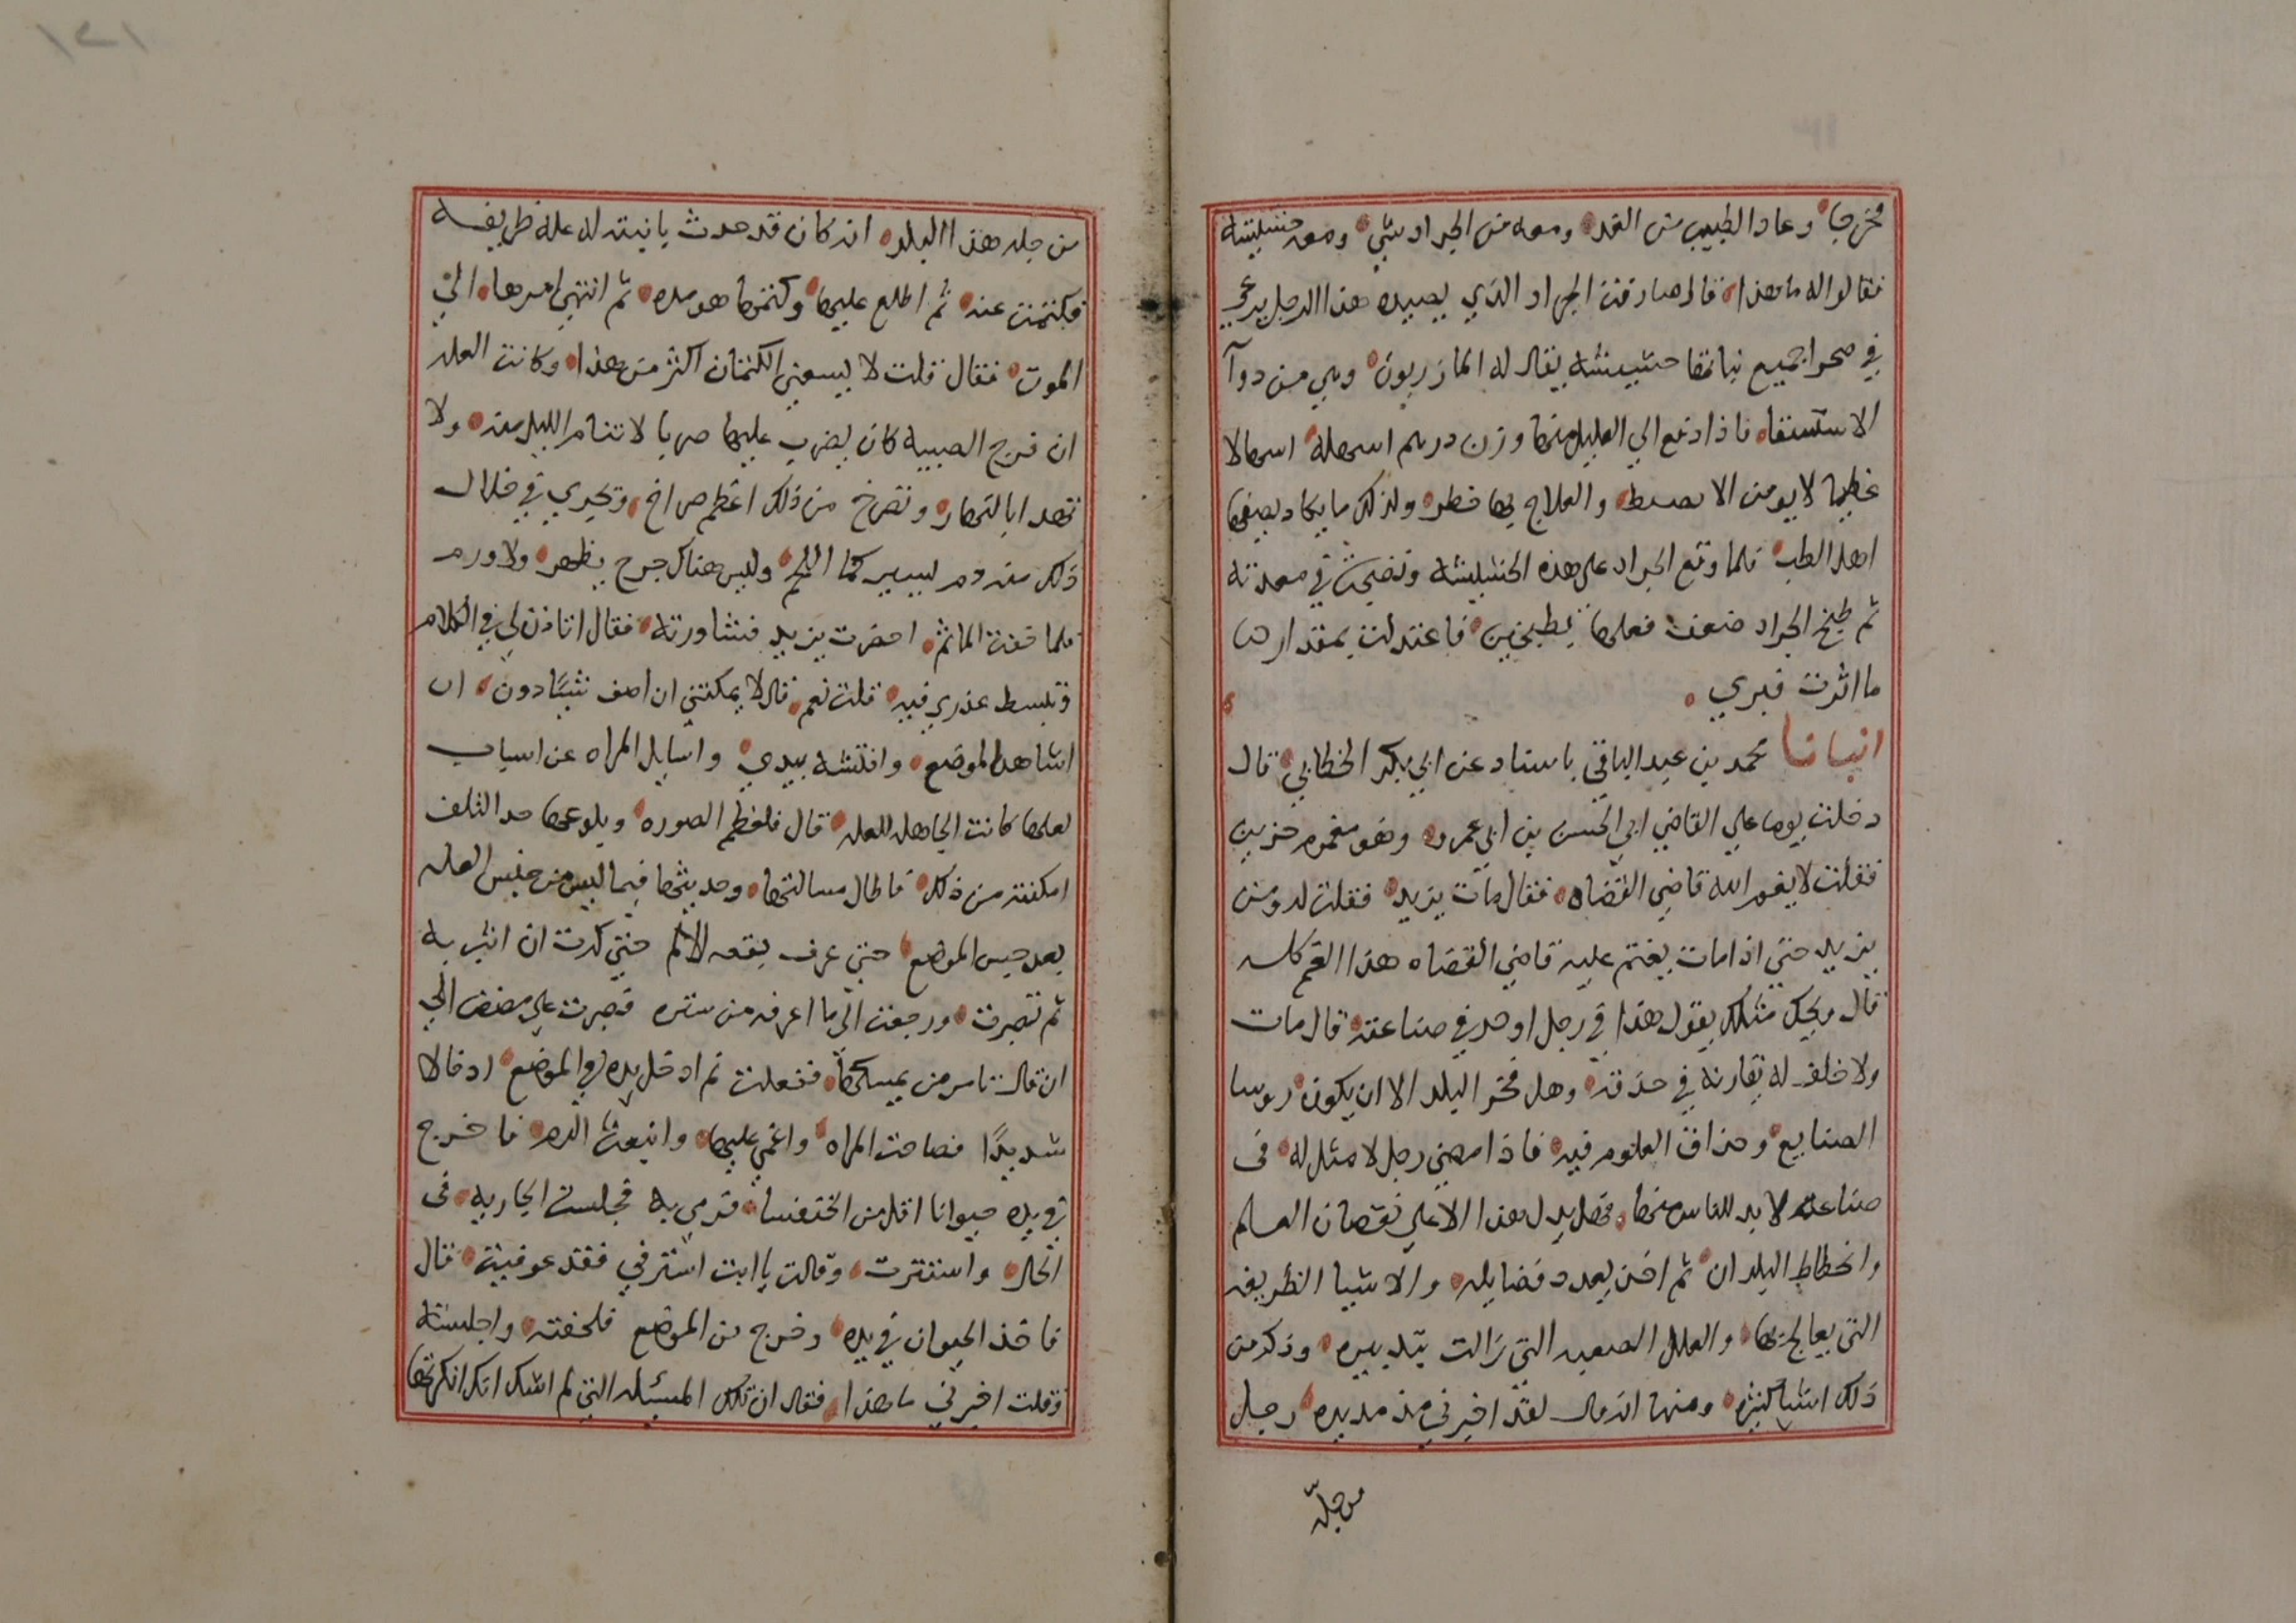 مخرجا وعاد الطبيب من الغد ومعه من الجراد شي ومعه حشيشة
فقالوا له ما هذا قال صادفت الجراد الذي يصيده هذا الرجل يرعي
في صحرا جميع نباتها حشيشة يقال له المازريون وهي من دوآ
الاستسقا فاذا دفع الي العليل منها وزن درهم اسهله اسهالا
عظيما لا يومن الا يضبط والعلاج بها خطر ولذلك ما يكاد يصفها
اهل الطب فلما وقع الجراد علي هذه الحشيشة ونضجت في معدته
ثم طبخ الجراد ضعف فعلها بطبخين فاعتدلت بمقدار ما
ما اثرت فبري
انبانا محمد بن عبد الباقي باسناد عن ابي بكر الخطابي قال
دخلت يوما علي القاضي ابي الحسن بن ابي عمرو وهو مغموم حزين
فقلت لا يغم الله قاضي القضاه فقال مات يزيد فقلت له ومن
يزيد حتي اذا مات يغتم عليه قاضي القضاه هذا الغم كله
قال ويحك مثلك يقول هذا في رجل اوحد في صناعته قال مات
ولا خلف له يقارنه في حذقه وهل فخر البلد الا ان يكون روسا
الصنايع وحذاق العلوم فيه فاذا مضي رجل لا مثل له في
صناعة لا بد للناس منها فهل يدل هذا الا علي نقصان العالم
وانحطاط البلدان ثم اخذ يعدد فضايله والاشيا الظريفه
التي يعالج بها والعلل الصعبه التي زالت بتدبيره وذكر من
ذلك اشيا كثيره ومنها انه قال لقد اخبرني منذ مديده رجل
من جلّه
من جله هذا البلد انه كان قد حدث بابنته له علة ظريفه
فكتمتها عنه ثم اطلع عليها وكتمها هو مده ثم انتهي امرها الي
الموت فقال قلت لا يسعني الكتمان اكثر من هذا وكانت العله
ان فرج الصبيه كان يضرب عليها ضربا لا تنام الليل منه ولا
تهدا بالنهار وتصرخ من ذلك اعظم صراخ ويجري في خلال
ذلك منه دم يسير كما اللحم وليس هناك جرح يظهر ولا ورم
فلما خفت الماثم احضرت يزيد فشاورته فقال اتاذن لي في الكلام
وتبسط عذري فيه قلت نعم قال لا يمكنني ان اصف شيًا دون ان
اشاهد الموضع وافتشه بيدي واسايل المراه عن اسباب
لعلها كانت الجاهله للعله قال فلعظم الصوره وبلوغها حد التلف
امكنته من ذلك فاطال مسالتها وحديثها فيما ليس من جنس العله
بعد حبس الموضع حتي عرف بقعه الالم حتي كدت ان اثب به
ثم تصبرت ورجعت الي ما اعرفه من ستره فصبرت علي مضض الي
ان قال تامر من يمسكها ففعلت ثم ادخل يده في الموضع ادخالا
شديدًا فصاحت المراه واغمي عليها وانبعث الدم فاخرج
في يده حيوانا اقل من الخنفسا فرمي به فجلست الجاريه في
الحال واستترت وقالت يا ابت استرني فقد عوفيت قال
فاخذ الحيوان في يده وخرج من الموضع فلحقته واجلسته
وقلت اخبرني ما هذا فقال ان تلك المسئله التي لم اشك انك انكرتها